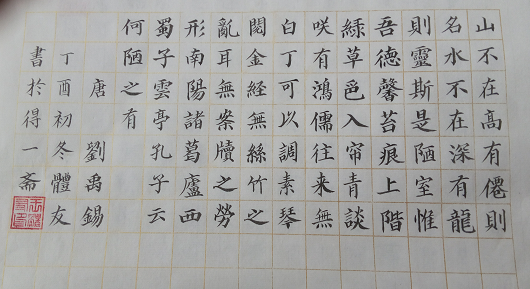 山不在高有僊則
名水不在深有龍
則靈斯是陋室惟
吾德馨苔痕上階
綠草色入帘青談
咲有鴻儒往来無
白丁可以調素琴
閱金経無絲竹之
亂耳無案牘之勞
形南陽諸葛廬西
蜀子雲亭孔子云
何陋之有
唐劉禹錫
丁酉初冬體友
書於得一斋